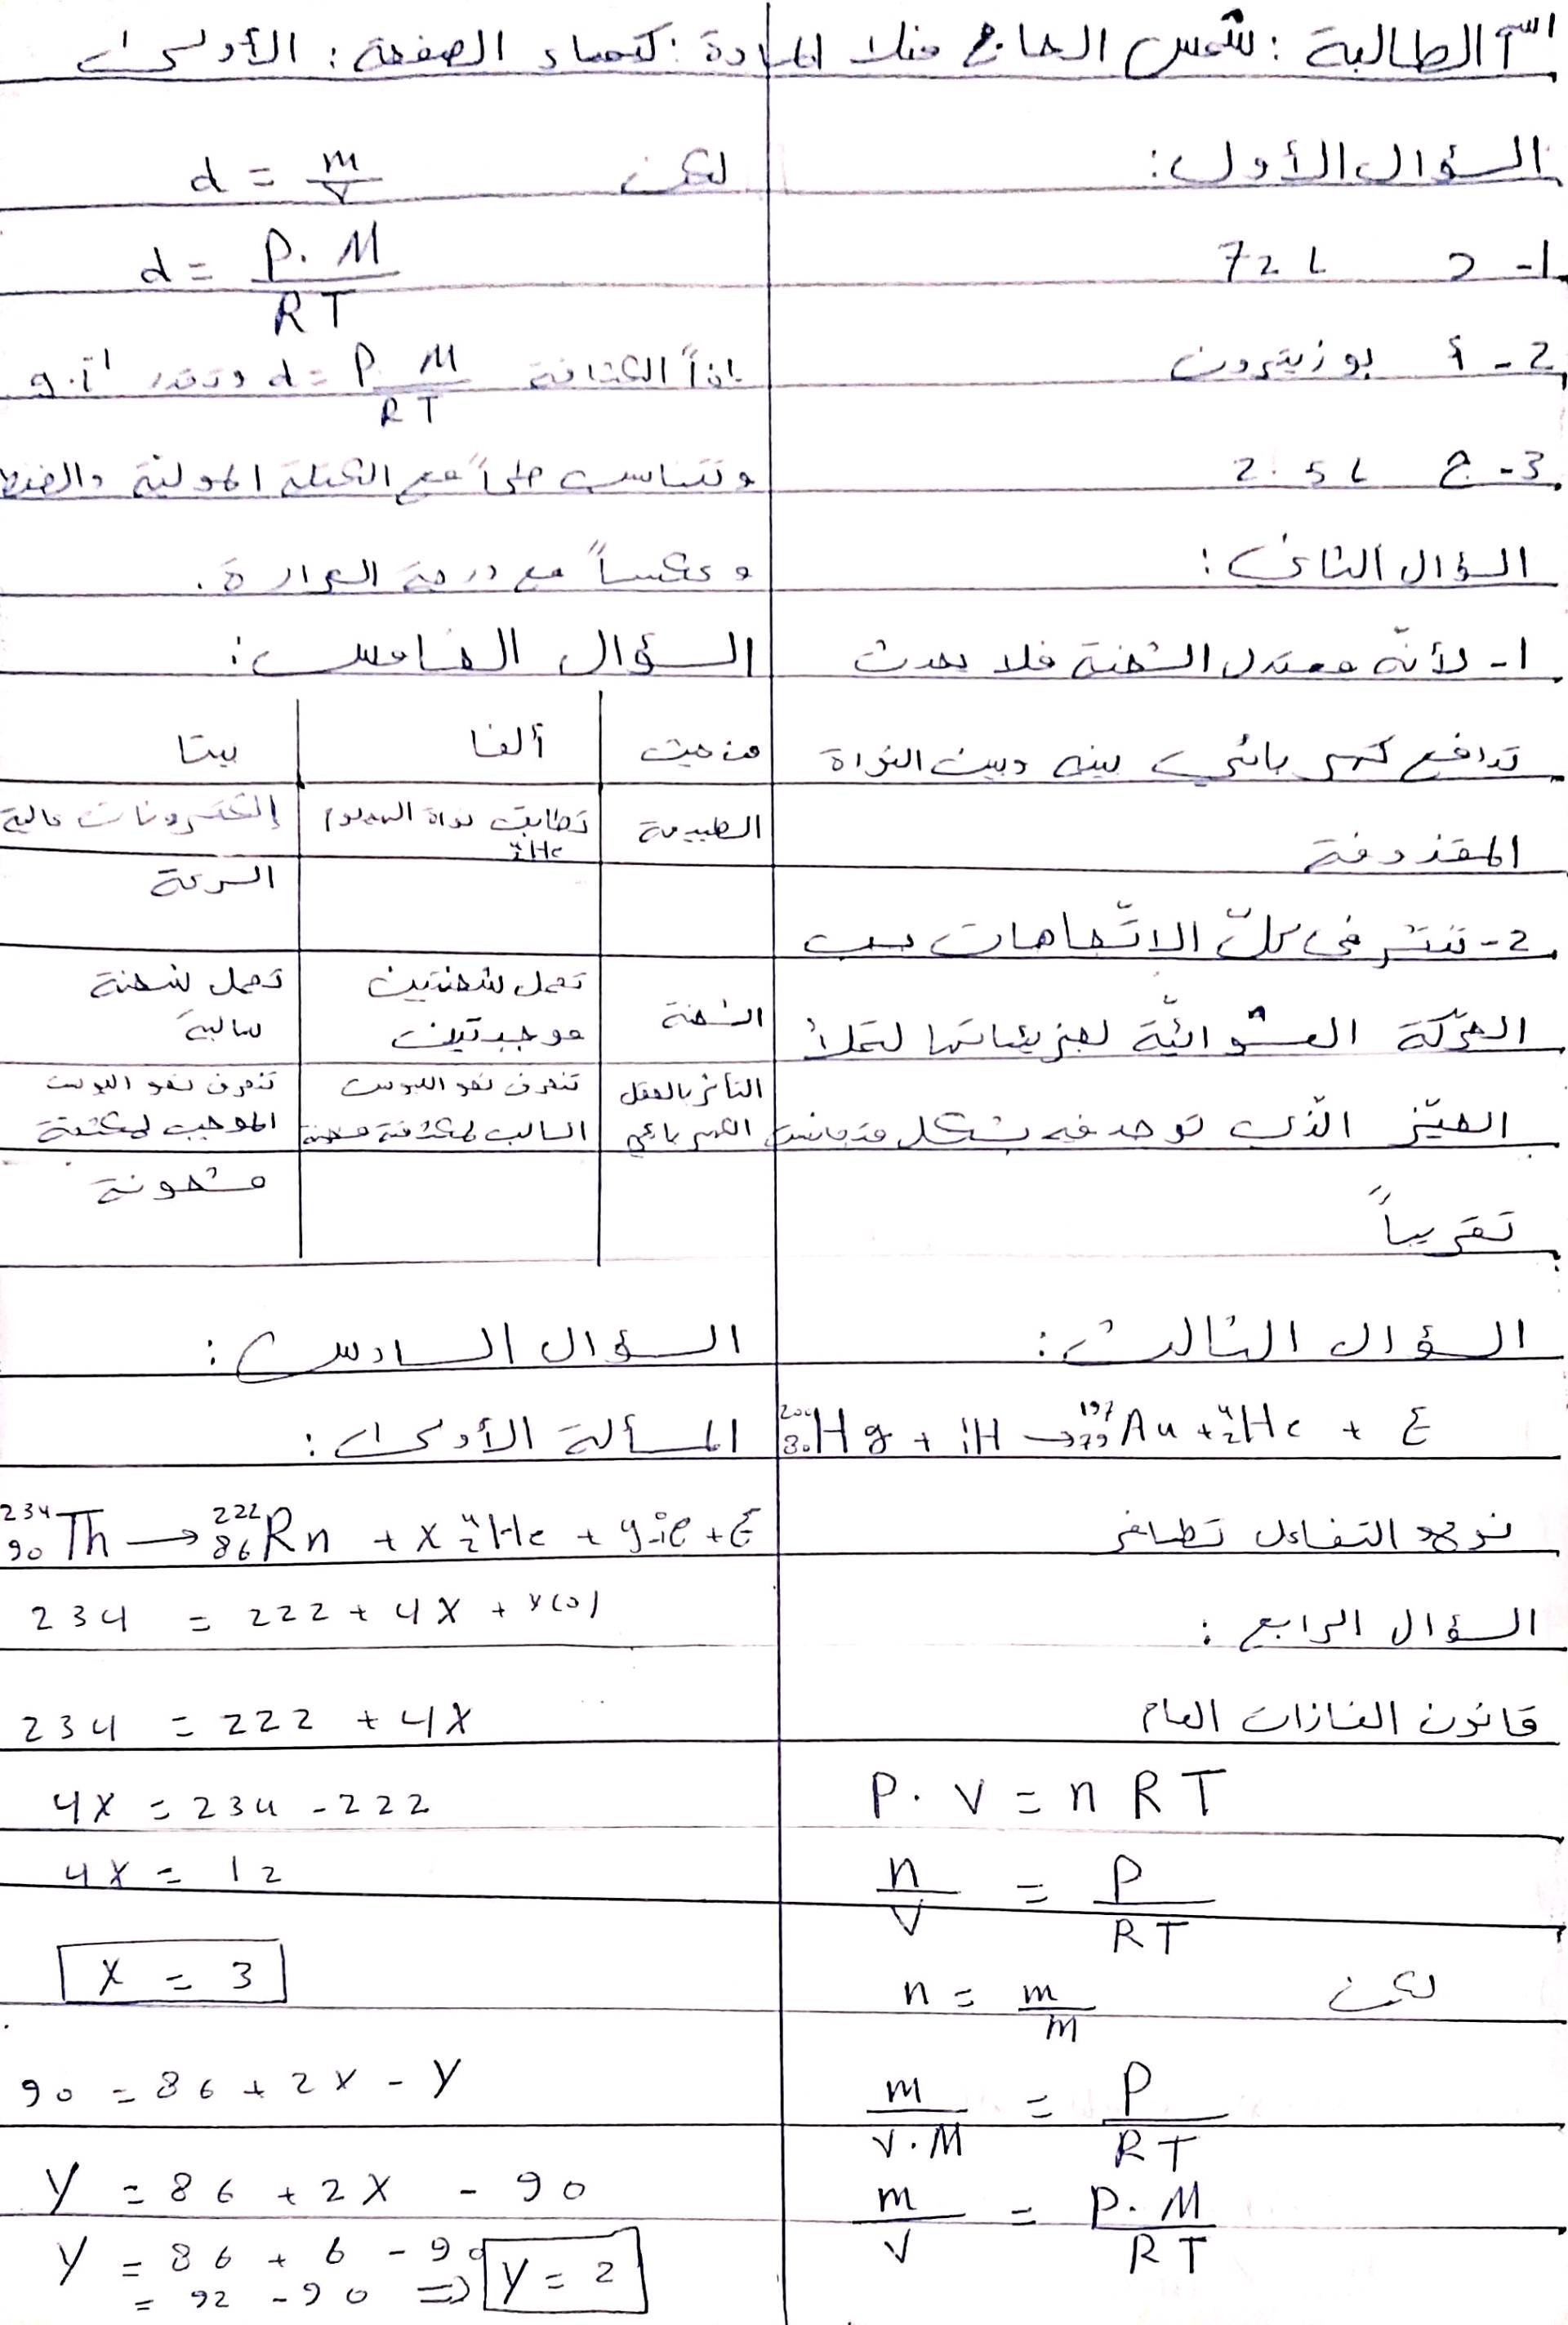 اسم الطالبة : شمس الحاج منلا المادة : كيمياء الصفحة : الأولى
السؤال الأول :
1- د 72 L
2- أ بوزيترون
3- ج 2.5 L
السؤال الثاني :
1- لأنّه معتدل الشحنة فلا يحدث
تدافع كهربائي بينه وبين النواة
المقذوفة
2- تنتشر في كلّ الاتّجاهات بسبب
الحركة العشوائيّة لجزيئاتها لتملأ
الحيّز الّذي توجد فيه بشكل متجانس
تقريباً
السؤال الثالث :
²⁰⁰₈₀Hg + ¹₁H → ¹⁹⁷₇₉Au + ⁴₂He + E
نوع التفاعل تطافر
السؤال الرابع :
قانون الغازات العام
P . V = n R T
n/V = P/RT
لكن n = m/M
m/V.M = P/RT
m/V = P.M/RT
لكن d = m/V
d = P.M/RT
إذاً الكثافة d = P M/RT وتقدر g.l⁻¹
وتتناسب طرداً مع الكتلة المولية والضغط
وعكساً مع درجة الحرارة .
السؤال الخامس :
من حيث ألفا بيتا
الطبيعة تطابق نواة الهيليوم ⁴₂He إلكترونات عالية السرعة
الشحنة تحمل شحنتين موجبتين تحمل شحنة سالبة
التأثر بالحقل الكهربائي تنحرف نحو اللبوس السالب لمكثفة مشحونة تنحرف نحو اللبوس الموجب لمكثفة مشحونة
السؤال السادس :
المسألة الأولى :
²³⁴₉₀Th → ²²²₈₆Rn + x ⁴₂He + y ⁰₋₁e + E
234 = 222 + 4X + Y(0)
234 = 222 + 4X
4X = 234 - 222
4X = 12
X = 3
90 = 86 + 2X - Y
Y = 86 + 2X - 90
Y = 86 + 6 - 90
= 92 - 90 ⇒ Y = 2